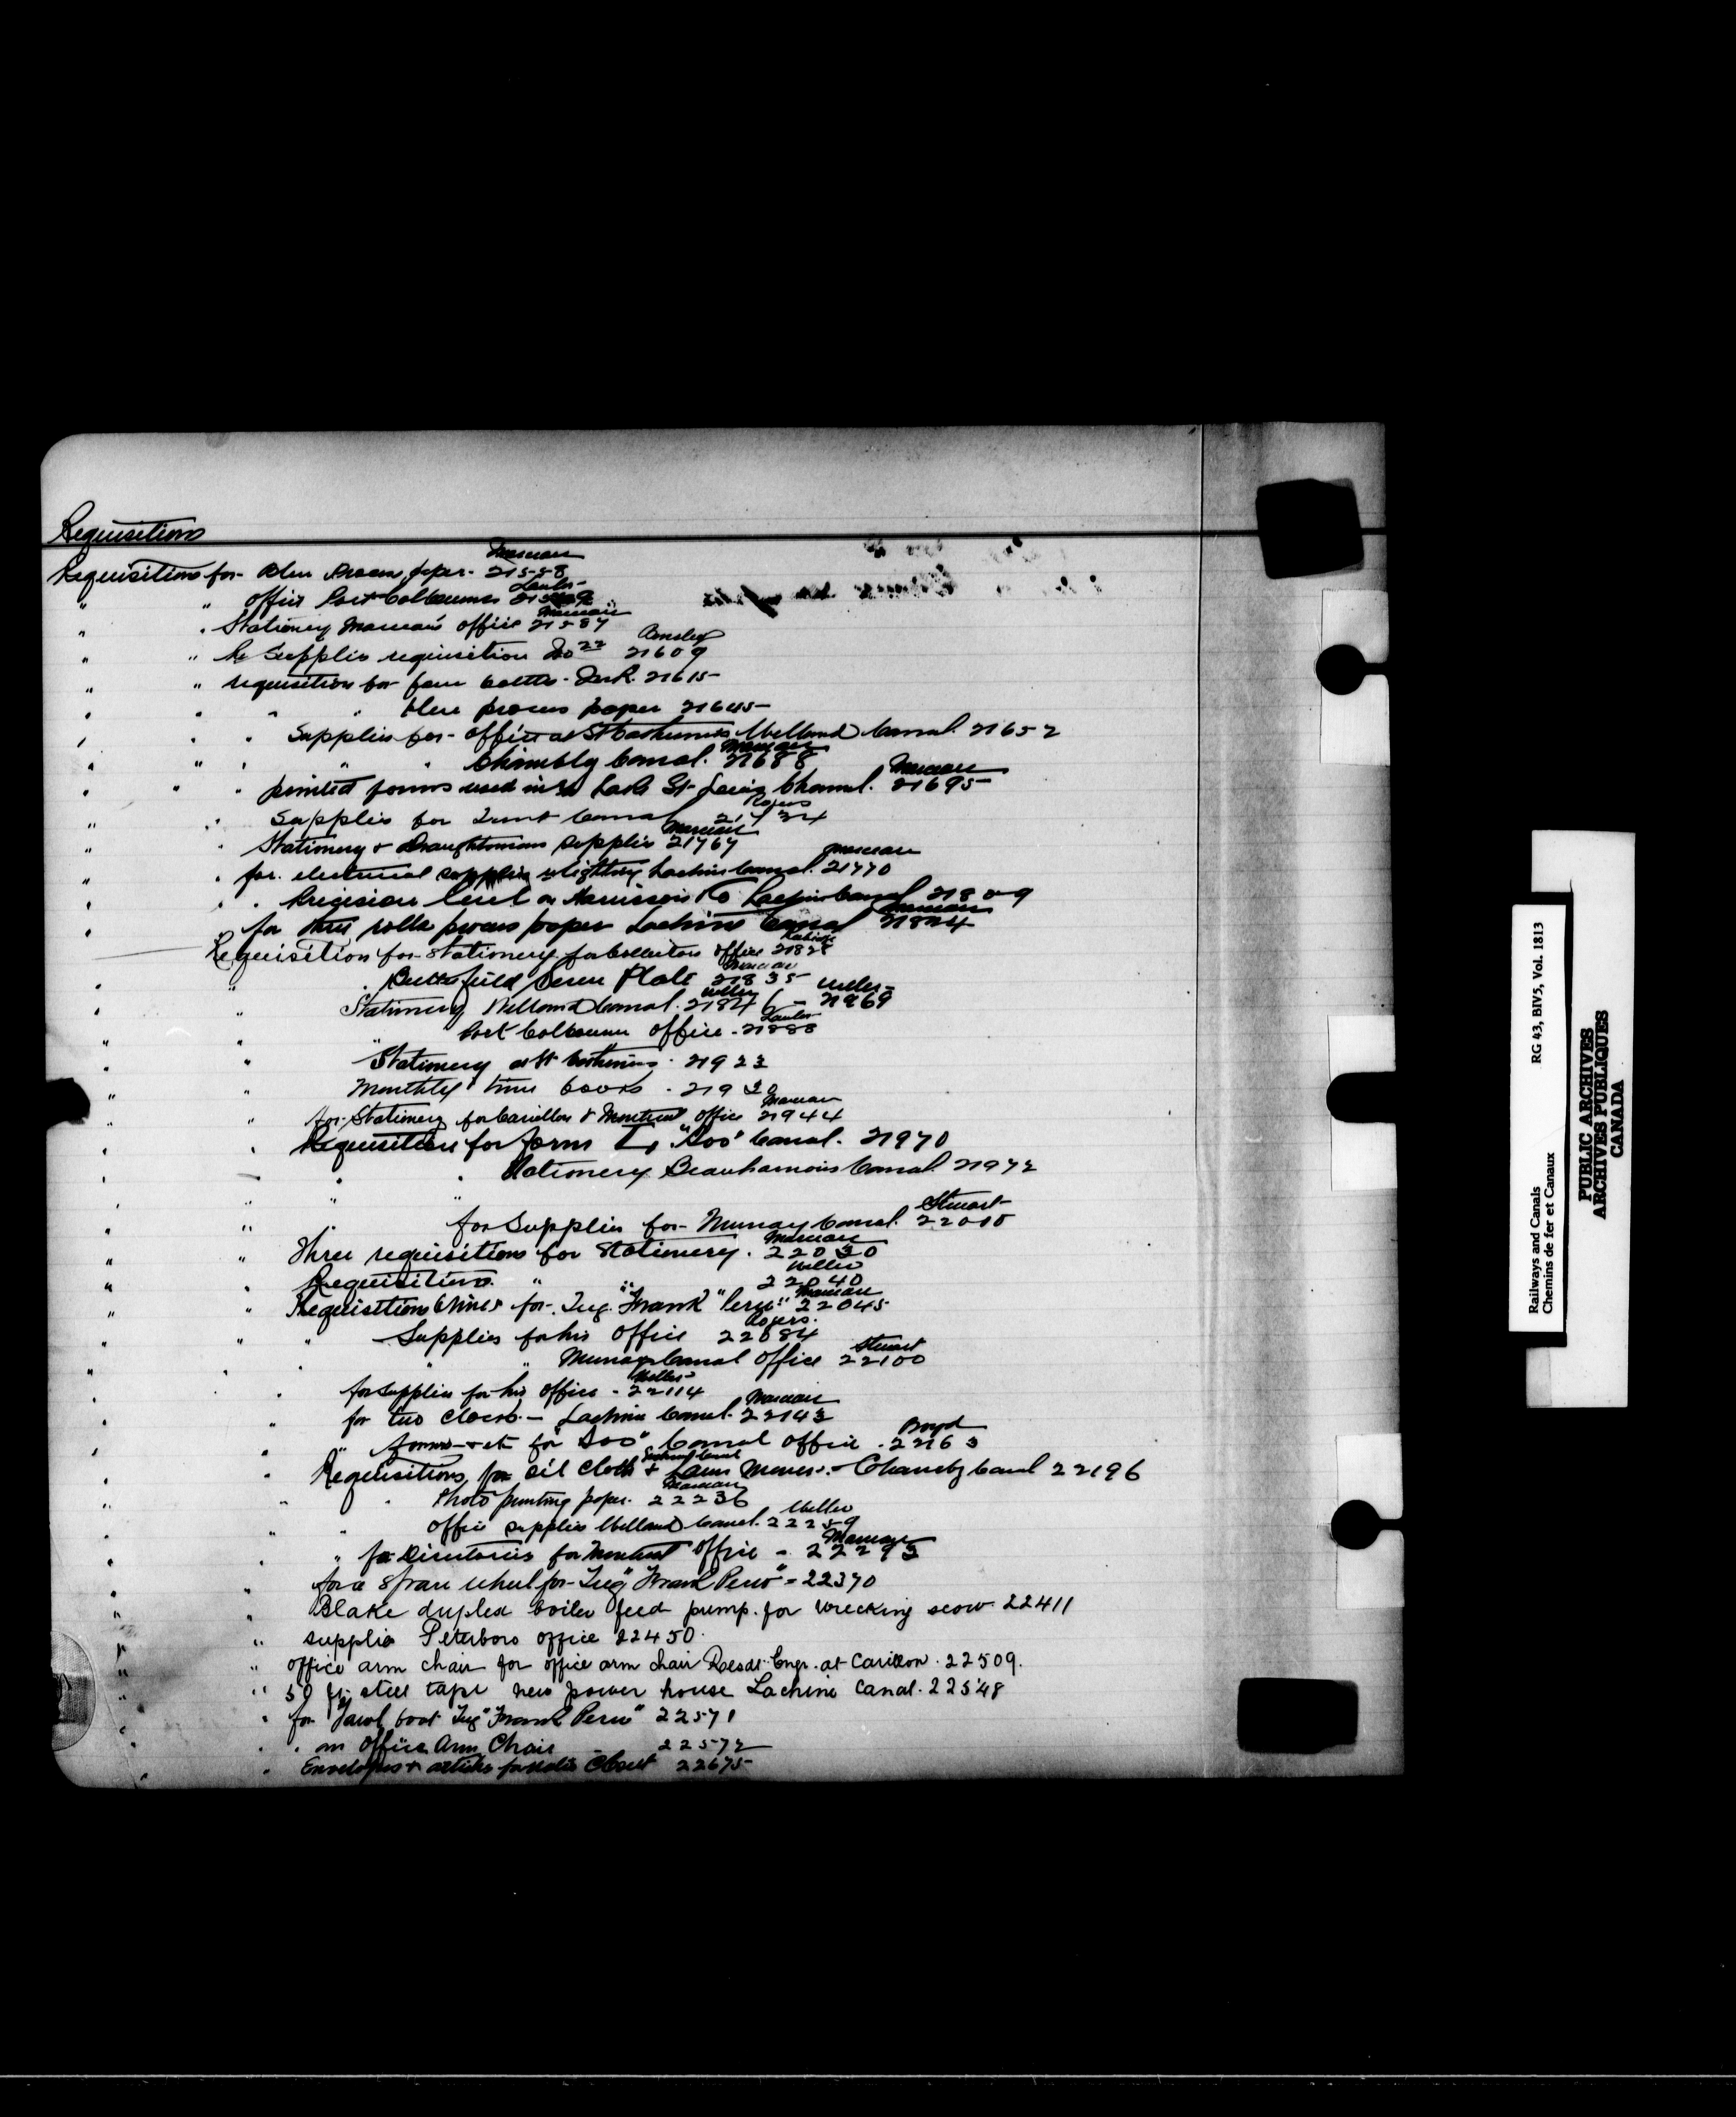 Requisitions
Marceau
Requisitions for Blue Process paper. 21558
Lawler
" " office Port Colborne
Marceau
" " Stationery Marceau's office 21587
Ainsley
" " Re Supplies requisition No 22 21609
" " requisition for four bottles Ink. 21615
" " " " Blue process paper 21645
" " " Supplies for office at St Catharines Welland Canal. 21652
Marceau
" " " " " Chambly Canal. 21688
Marceau
" " " printed forms used in Lake St. Louis Channel. 21695
Rogers
" " Supplies for Trent Canal 21724
Marceau
" " Stationery & Draughtsmans supplies 21767
Marceau
" " for electrical supplies lighting Lachine Canal. 21770
" " " Precision level Lachine Canal 21809
Marceau
" " for three rolls process paper Lachine Canal 21824
Requisition for Stationery for Collectors office 2182
Marceau
" " " Butterfield Screw Plate 21835
Weller Weller
" " Stationery Welland Canal. 21846 - 21869
Lawler
" " " Port Colborne office. 21888
" " Stationery at St Catharines. 21923
" " Monthly time books. 21930
Marceau
" " for Stationery for Carillon & Montreal office 21944
" " Requisition for forms "Soo" Canal. 21970
" " " Stationery Beauharnois Canal 21972
Stewart
" " " " for Supplies for Murray Canal. 22010
Marceau
" " Three requisitions for Stationery. 22030
Weller
" " Requisitions " " 22040
Marceau
" " Requisitions for Tug "Frank Perew" 22045
Rogers.
" " " Supplies for his office 22084
Stewart
" " " " Murray Canal office 22100
Weller
" " for supplies for his office - 22114
Marceau
" " for two clocks - Lachine Canal. 22143
Boyd
" " " forms etc for "Soo" Canal office. 22163
Lachine Canal
" " Requisitions for Oil Cloth & Lawn Mower. - Chambly Canal 22196
Marceau
" " " Photo printing paper. 22236
Weller
" " " Office supplies Welland Canal. 22259
Marceau
" " " for Directories for Montreal office - 22293
" " for a spare wheel for Tug "Frank Perew" - 22370
" " Blake duplex boiler feed pump. for wrecking scow. 22411
" " supplies Peterboro office 22450.
" " office arm chair for office arm chair Resdt. Engr. at Carillon. 22509.
" " 50 ft. steel tape new power house Lachine Canal. 22548
" " for Yawl boat Tug "Frank Perew" 22571
" " " an Office Arm Chair - 22572
" " Envelopes & articles for 22675
Railways and Canals RG 43, BIV5, Vol. 1813
Chemins de fer et Canaux
PUBLIC ARCHIVES
ARCHIVES PUBLIQUES
CANADA